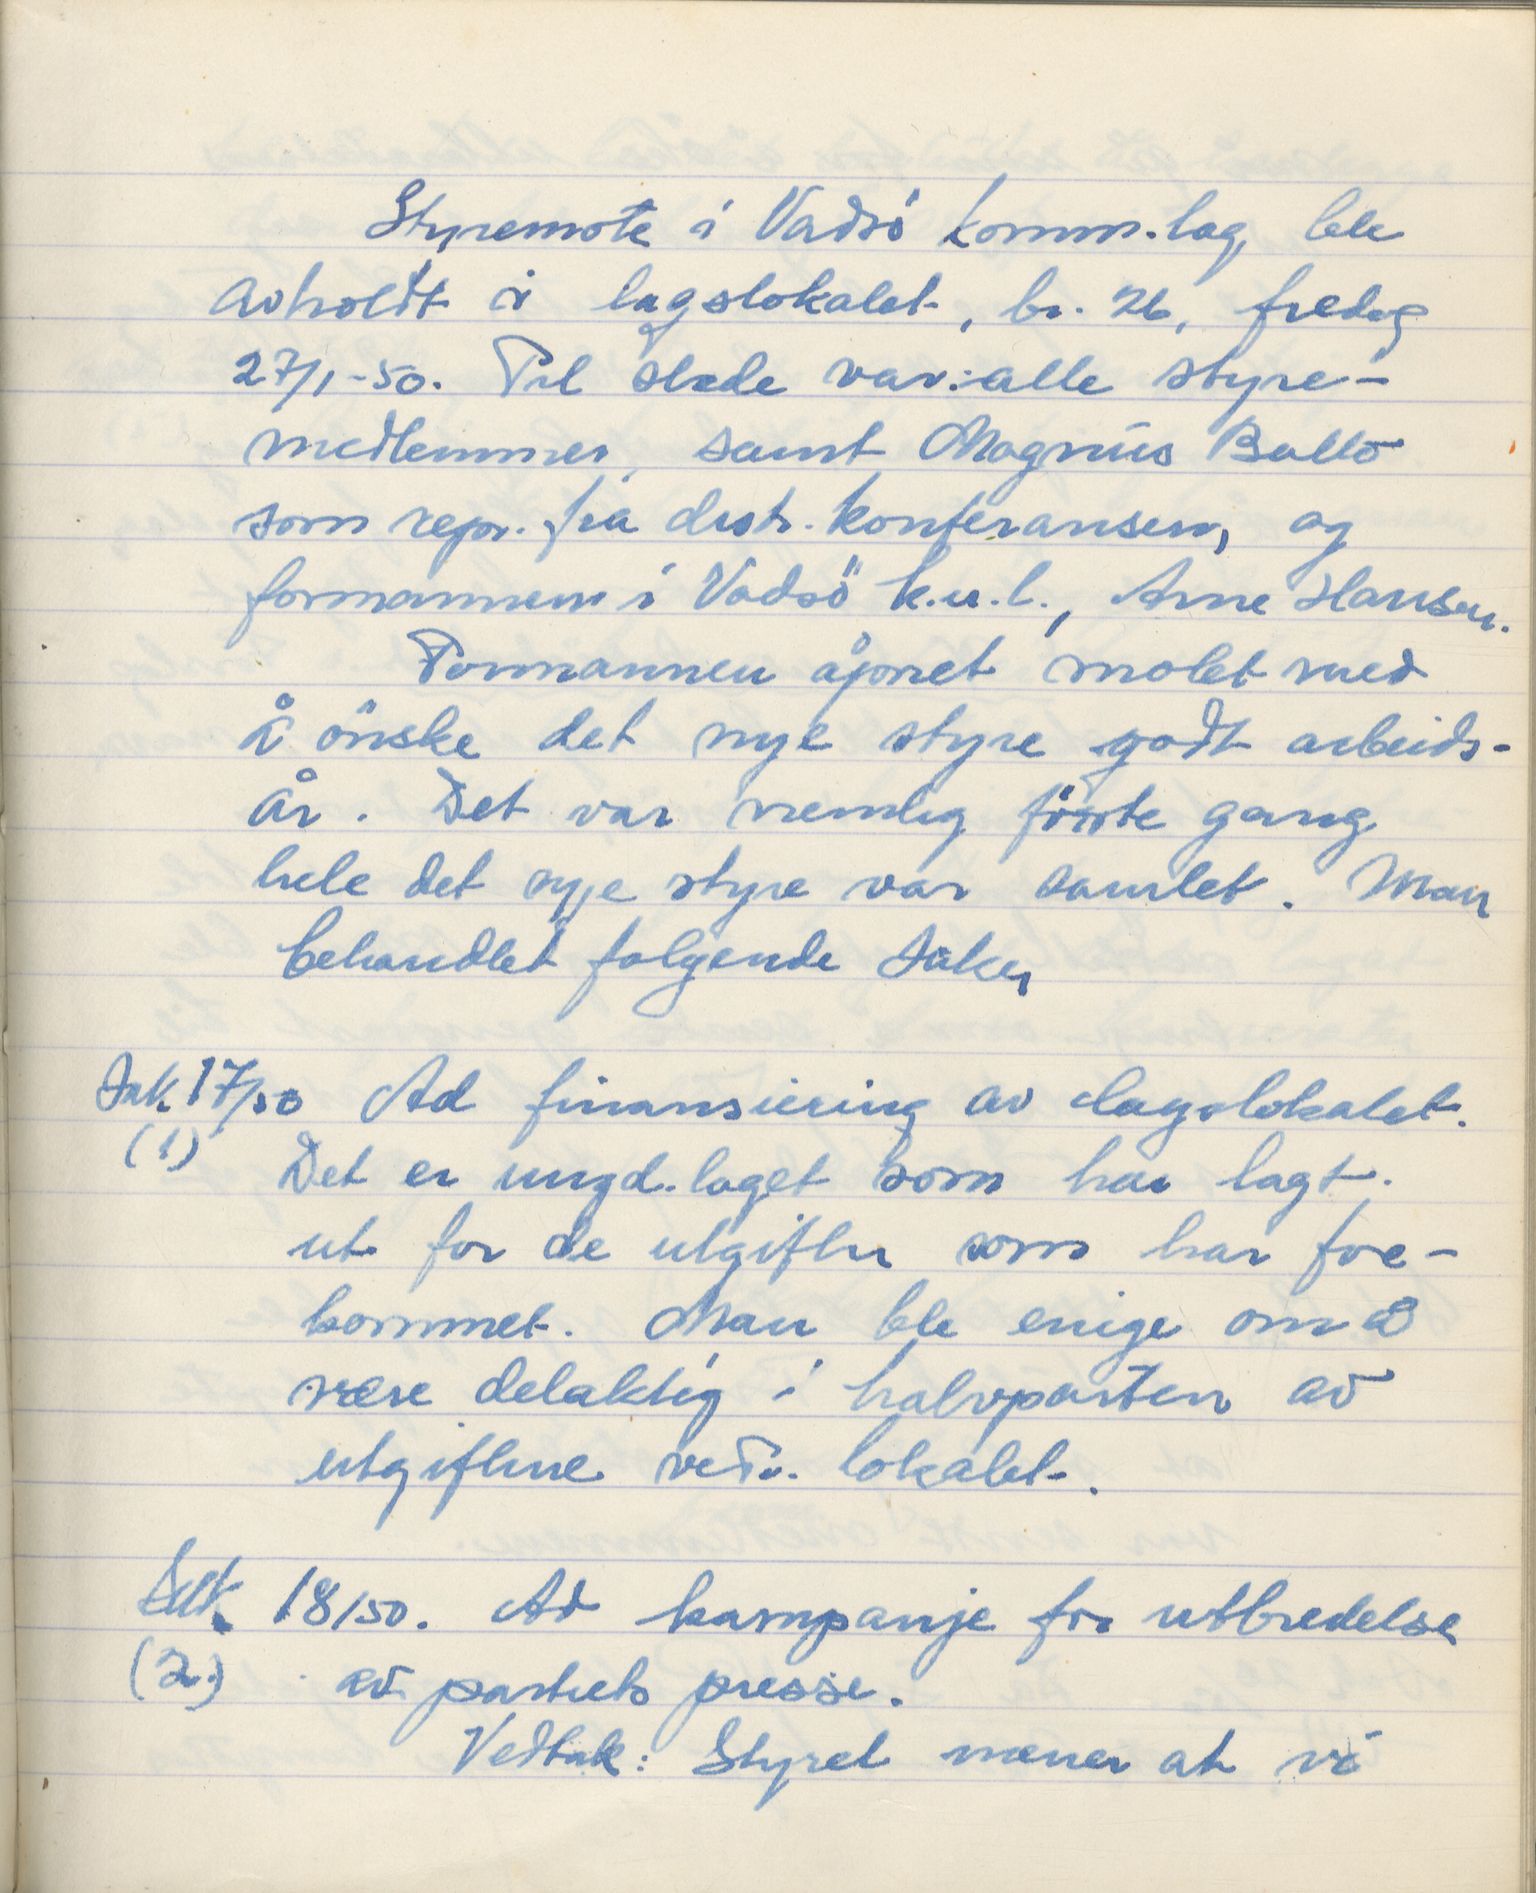 Styremöte i Vadsö komm.lag, ble
avholdt i lagslokalet, br. 26, fredag
27/1-50. Til stede var: alle styre-
medlemmer, samt Magnus Ballo
som repr. fra dist. konferansen, og
formannen i Vadsö k.u.l., Arne Hansen.
Formannen åpnet mötet med
å önske det nye styre godt arbeids-
år. Det var nemlig förste gang
hele det nye styre var samlet. Man
behandlet følgende saker
Sak 17/50 Ad finansiering av lagslokalet.
(1) Det er ungd.laget som har lagt
ut for de utgifter som har fore-
kommet. Man ble enige om å
være delaktig i halvparten av
utgiftene vedr. lokalet.
Sak 18/50. Ad kampanje for utbredelse
(2.) av partiets presse.
Vedtak: Styret mener at vi